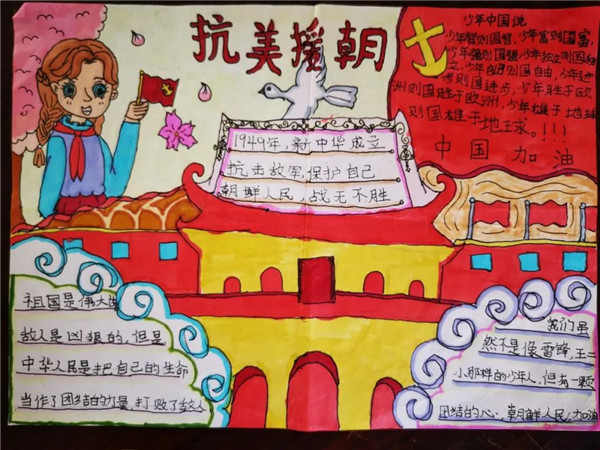 抗美援朝
少年中国说
少年智则国智,少年富则国富,
少年强则国强,少年独立则国独
立,少年自由则国自由,少年进
步则国进步,少年胜于欧
洲则国胜于欧洲,少年雄于地球
则国雄于地球。!!!
中国加油
1949年,新中华成立
抗击敌军,保护自己
朝鲜人民,战无不胜
祖国是伟大的
敌人是凶狠的,但是
中华人民是把自己的生命
当作了团结的力量,打败了敌人
我们虽
然不是像雷锋,王二
小那样的少年人,但有一颗
团结的心,朝鲜人民,加油